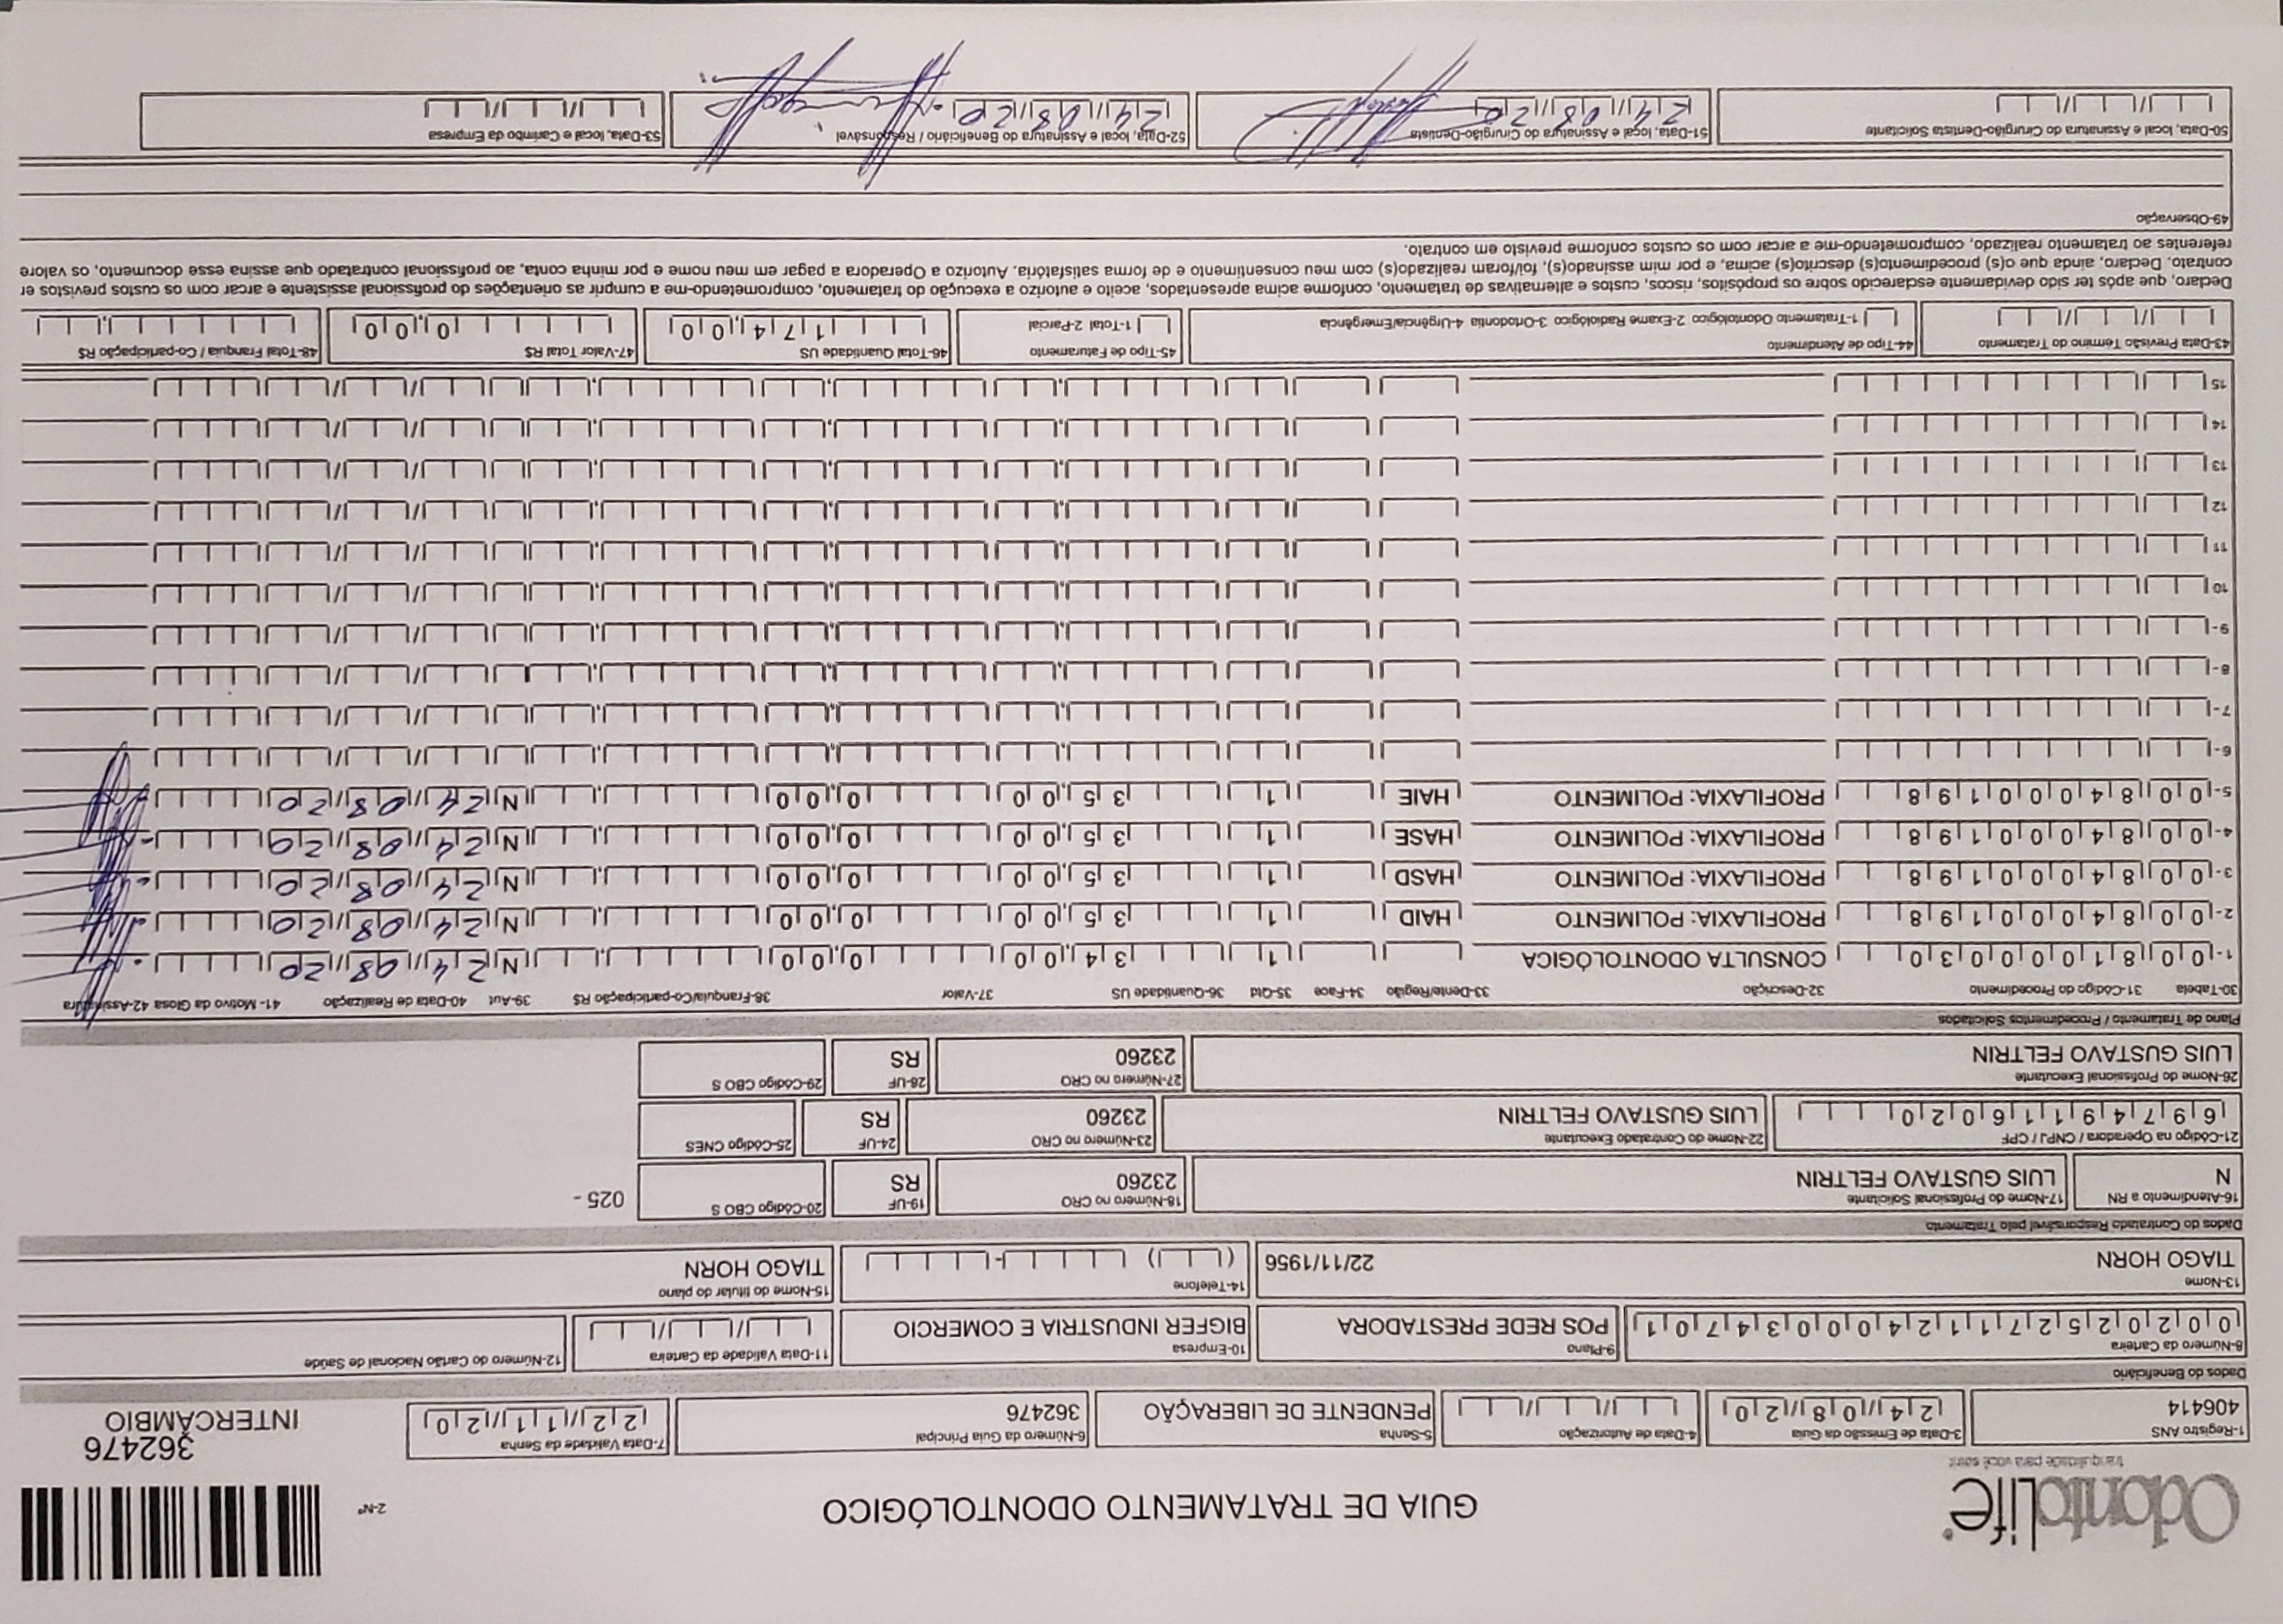 OdontoLife
tranquilidade para você sorrir
GUIA DE TRATAMENTO ODONTOLÓGICO
2-Nº
362476
INTERCÂMBIO
1-Registro ANS
406414
3-Data de Emissão da Guia
24/08/20
4-Data de Autorização
5-Senha
PENDENTE DE LIBERAÇÃO
6-Número da Guia Principal
362476
7-Data Validade da Senha
22/11/20
Dados do Beneficiário
8-Número da Carteira
00202527112400034701
9-Plano
POS REDE PRESTADORA
10-Empresa
BIGFER INDUSTRIA E COMERCIO
11-Data Validade da Carteira
12-Número do Cartão Nacional de Saúde
13-Nome
TIAGO HORN
22/11/1956
14-Telefone
15-Nome do titular do plano
TIAGO HORN
Dados do Contratado Responsável pelo Tratamento
16-Atendimento a RN
N
17-Nome do Profissional Solicitante
LUIS GUSTAVO FELTRIN
18-Número no CRO
23260
19-UF
RS
20-Código CBO S
025 -
21-Código na Operadora / CNPJ / CPF
69749116020
22-Nome do Contratado Executante
LUIS GUSTAVO FELTRIN
23-Número no CRO
23260
24-UF
RS
25-Código CNES
26-Nome do Profissional Executante
LUIS GUSTAVO FELTRIN
27-Número no CRO
23260
28-UF
RS
29-Código CBO S
Plano de Tratamento / Procedimentos Solicitados
30-Tabela 31-Código do Procedimento 32-Descrição 33-Dente/Região 34-Face 35-Qtd 36-Quantidade US 37-Valor 38-Franquia/Co-participação R$ 39-Aut 40-Data de Realização 41- Motivo da Glosa 42-Assinatura
1- 00 81000030 CONSULTA ODONTOLÓGICA 1 34,00 0,00 N 24/08/20
2- 00 84000198 PROFILAXIA: POLIMENTO HAID 1 35,00 0,00 N 24/08/20
3- 00 84000198 PROFILAXIA: POLIMENTO HASD 1 35,00 0,00 N 24/08/20
4- 00 84000198 PROFILAXIA: POLIMENTO HASE 1 35,00 0,00 N 24/08/20
5- 00 84000198 PROFILAXIA: POLIMENTO HAIE 1 35,00 0,00 N 24/08/20
6-
7-
8-
9-
10
11
12
13
14
15
43-Data Previsão Término do Tratamento
44-Tipo de Atendimento
1-Tratamento Odontológico 2-Exame Radiológico 3-Ortodontia 4-Urgência/Emergência
45-Tipo de Faturamento
1-Total 2-Parcial
46-Total Quantidade US
174,00
47-Valor Total R$
0,00
48-Total Franquia / Co-participação R$
Declaro, que após ter sido devidamente esclarecido sobre os propósitos, riscos, custos e alternativas de tratamento, conforme acima apresentados, aceito e autorizo a execução do tratamento, comprometendo-me a cumprir as orientações do profissional assistente e arcar com os custos previstos er
contrato. Declaro, ainda que o(s) procedimento(s) descrito(s) acima, e por mim assinado(s), foi/foram realizado(s) com meu consentimento e de forma satisfatória. Autorizo a Operadora a pagar em meu nome e por minha conta, ao profissional contratado que assina esse documento, os valore
referentes ao tratamento realizado, comprometendo-me a arcar com os custos conforme previsto em contrato.
49-Observação
50-Data, local e Assinatura do Cirurgião-Dentista Solicitante
51-Data, local e Assinatura do Cirurgião-Dentista
24/08/20
52-Data, local e Assinatura do Beneficiário / Responsável
24/08/20
53-Data, local e Carimbo da Empresa